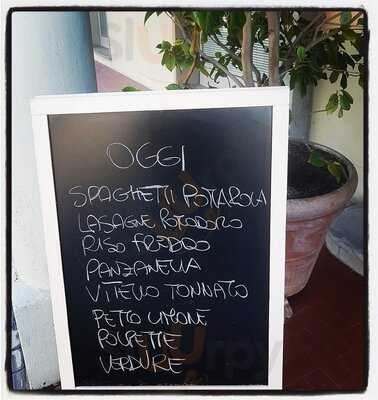 OGGI
SPAGHETTI POTTAROLA
LASAGNE POMODORO
RISO FREDDO
PANZANELLA
VITELLO TONNATO
PETTO LIMONE
POLPETTE
VERDURE